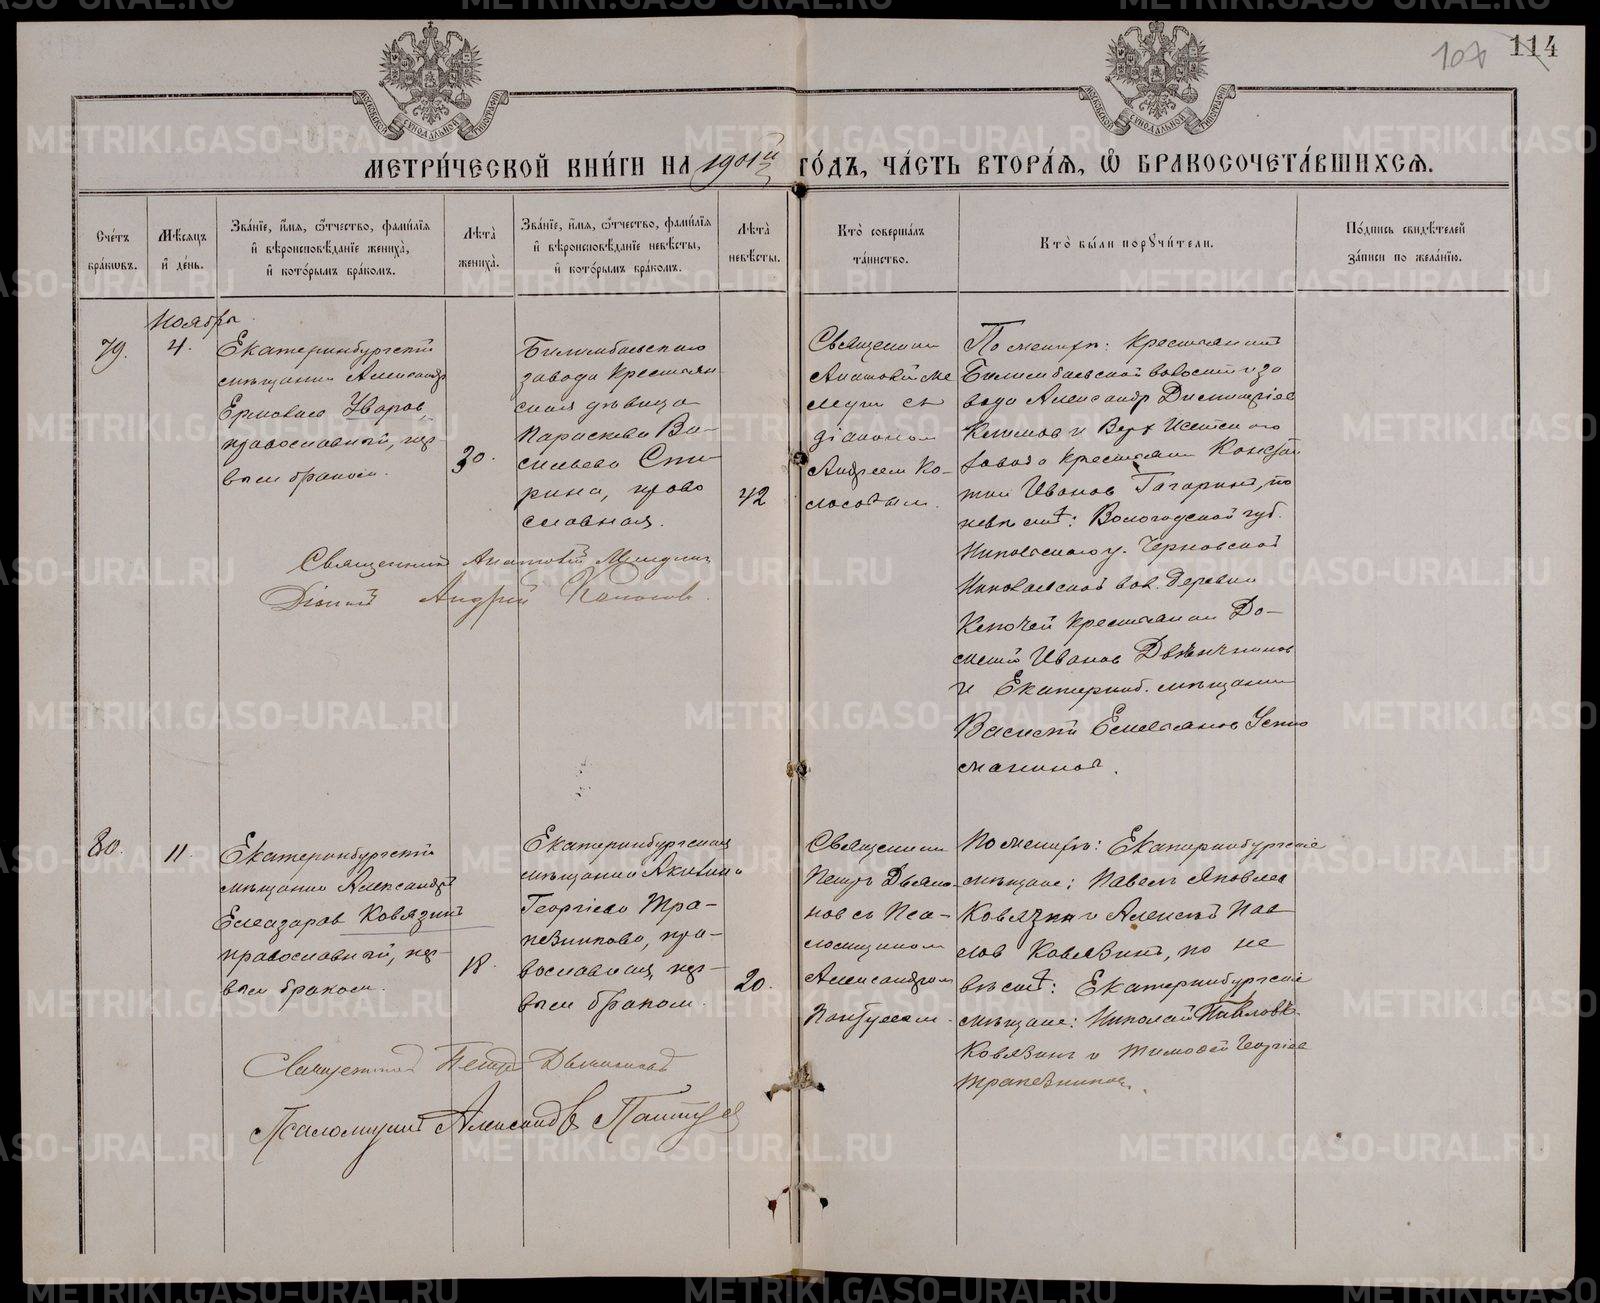 107 114
МЕТРИ́ЧЕСКОЙ КНИ́ГИ НА 1901й ГО́ДЪ, ЧА́СТЬ ВТОРА́Я, Ѡ БРАКОСОЧЕТА́ВШИХСѦ.
Сче́тъ
бра́кѡвъ.
Мѣ́сяцъ
и҆ де́нь.
Зва́нїе, и҆́мя, ѻ҆́тчество, фами́лїя
и҆ вѣроисповѣ́данїе жениха̀,
и҆ кото́рымъ бра́комъ.
Лѣта̀
жениха̀.
Зва́нїе, и҆́мя, ѻ҆́тчество, фами́лїя
и҆ вѣроисповѣ́данїе невѣ́сты,
и҆ кото́рымъ бра́комъ.
Лѣта̀
невѣ́сты.
Кто̀ соверша́лъ
та́инство.
Кто̀ бы́ли порꙋчи́тели.
По́дпись свидѣ́телей
за́писи по жела́нїю.
Ноября
79.
4.
Екатеринбургскій
мѣщанинъ Александръ
Ермолаевъ Уваровъ,
православный, пер-
вымъ бракомъ.
30.
Билимбаевскаго
завода крестьян
ская дѣвица
Параскева Ва-
сильева Спи-
рина, право
славная.
42
Священникъ
діакономъ
Андреемъ Ко-
лосовымъ.
По женихѣ: крестьянинъ
Билимбаевской волости и за
вода Александръ Димитріевъ
Климовъ и Верх Исетскаго
завода крестьянинъ Констан
тинъ Ивановъ Гагаринъ, по
невѣстѣ: Вологодской губ.
Никольскаго у. Черновской
Николаевской вол. деревни
крестьянинъ До-
Ивановъ
и Екатеринб. мѣщанинъ
Василій Емельяновъ Усть
манинъ.
Священникъ
Діаконъ Андрей Колосовъ.
80.
11.
Екатеринбургскій
мѣщанинъ Александръ
Елеазаровъ Ковязинъ
православный, пер-
вымъ бракомъ.
18.
Екатеринбургская
мѣщанка Акилина
Георгіева Тра-
пезникова, пра-
вославная, пер-
вымъ бракомъ.
20.
Священникъ
Петръ Дьяко-
новъ съ Пса-
ломщикомъ
Александромъ
По женихѣ: Екатеринбургскіе
мѣщане: Павелъ Яковлевъ
Ковязинъ и Алексѣй Пав
ловъ Ковязинъ, по не
вѣстѣ: Екатеринбургскіе
мѣщане: Николай Павловъ
Ковязинъ и Тимофей Георгіевъ
Трапезниковъ.
Священникъ Петръ Дьяконовъ
Псаломщикъ Александръ